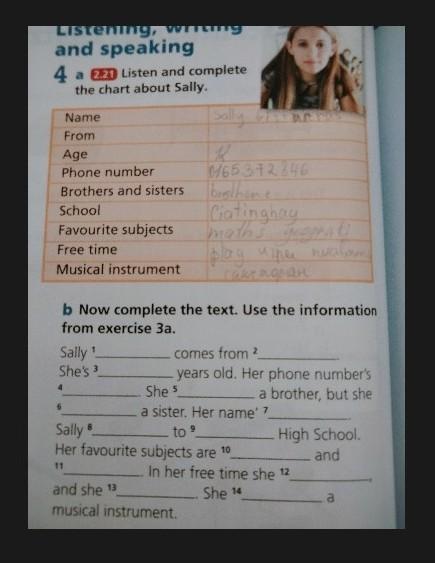 Listening, writing
and speaking
4 a 2.21 Listen and complete
the chart about Sally.
Name Sally
From
Age 12
Phone number 0165372846
Brothers and sisters
School
Favourite subjects maths
Free time play
Musical instrument
b Now complete the text. Use the information
from exercise 3a.
Sally 1__________ comes from 2__________.
She's 3__________ years old. Her phone number's
4__________. She 5__________ a brother, but she
6__________ a sister. Her name' 7__________.
Sally 8__________ to 9__________ High School.
Her favourite subjects are 10__________ and
11__________. In her free time she 12__________,
and she 13__________. She 14__________ a
musical instrument.